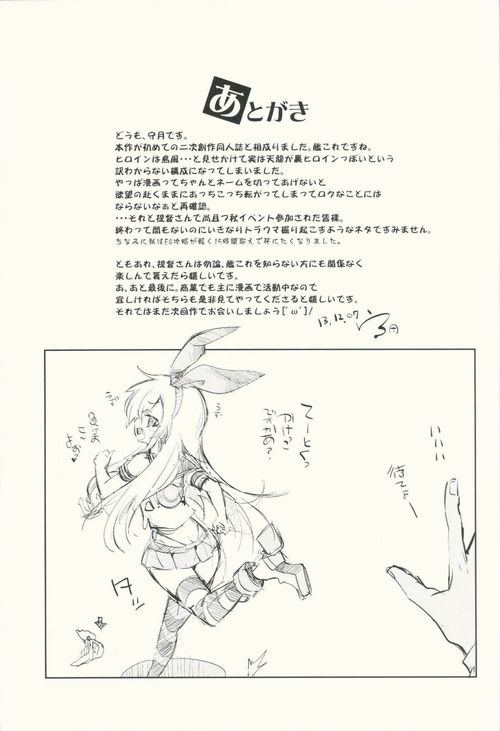 あとがき
どうも、守月です。
本作が初めての二次創作同人誌と相成りました。艦これですね。
ヒロインは島風・・・と見せかけて実は天龍が裏ヒロインっぽいという
訳わからない構成になってしまいました。
やっぱ漫画ってちゃんとネームを切ってあげないと
欲望の赴くままにあっちこっち転がってしまってロクなことには
ならないなぁと再確認。
・・・それと提督さんで尚且つ秋イベント参加された皆様。
終わって間もないのにいきなりトラウマ掘り起こすようなネタですみません。
ともあれ、提督さんは勿論、艦これを知らない方にも関係なく
楽しんで貰えたら嬉しいです。
あ、あと最後に。商業でも主に漫画で活動中なので
宜しければそちらも是非見てやってくださると嬉しいです。
それではまた次回作でお会いしましょう['ω']/
13.12.07
てーとくっ
かけっこ
ですかぁ?
待てよー